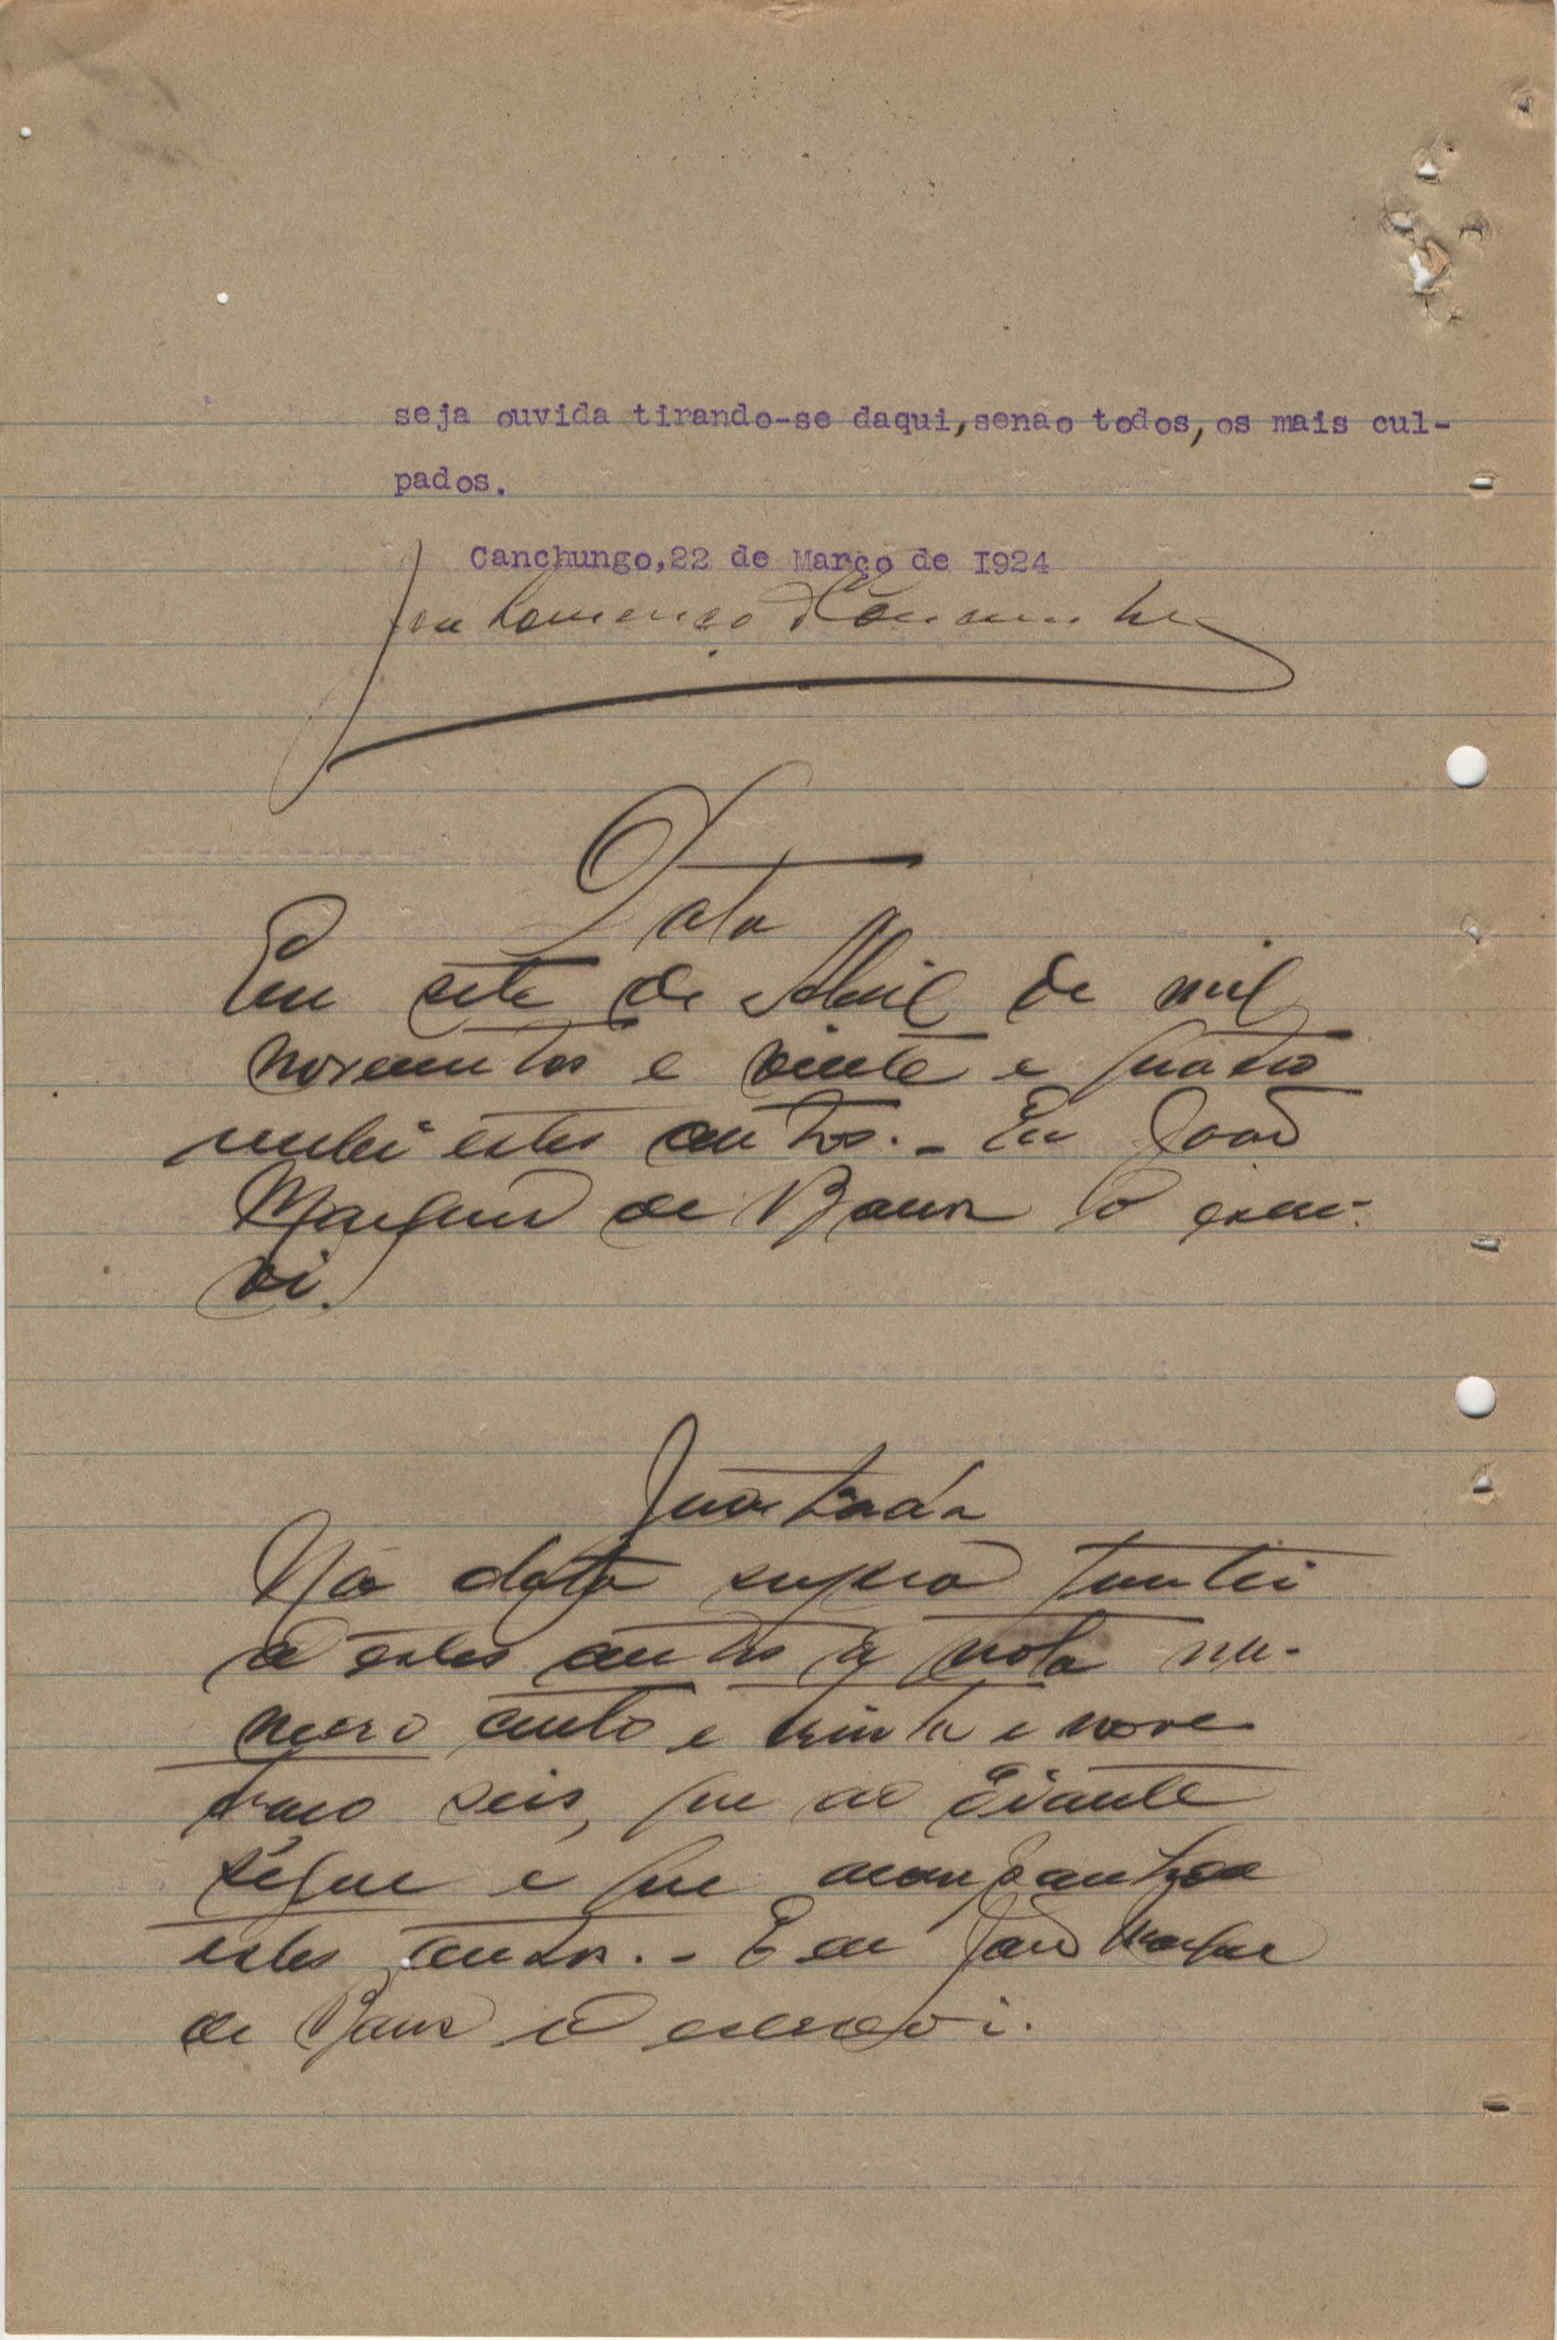 seja ouvida tirando-se daqui,senao todos,os mais cul-
pados.
Canchungo,22 de Março de I924
Data
Em sete de Abril de mil
novecentos e vinte e quatro
recebi estes autos.- Eu João
de Barros o escre-
vi.
Juntada
Na data supra juntei
a estes autos a nota nu-
mero cento e trinta e nove
traço seis, que ao diante
segue e que acompanhou
estes autos.- E eu João
de Barros o escrevi.